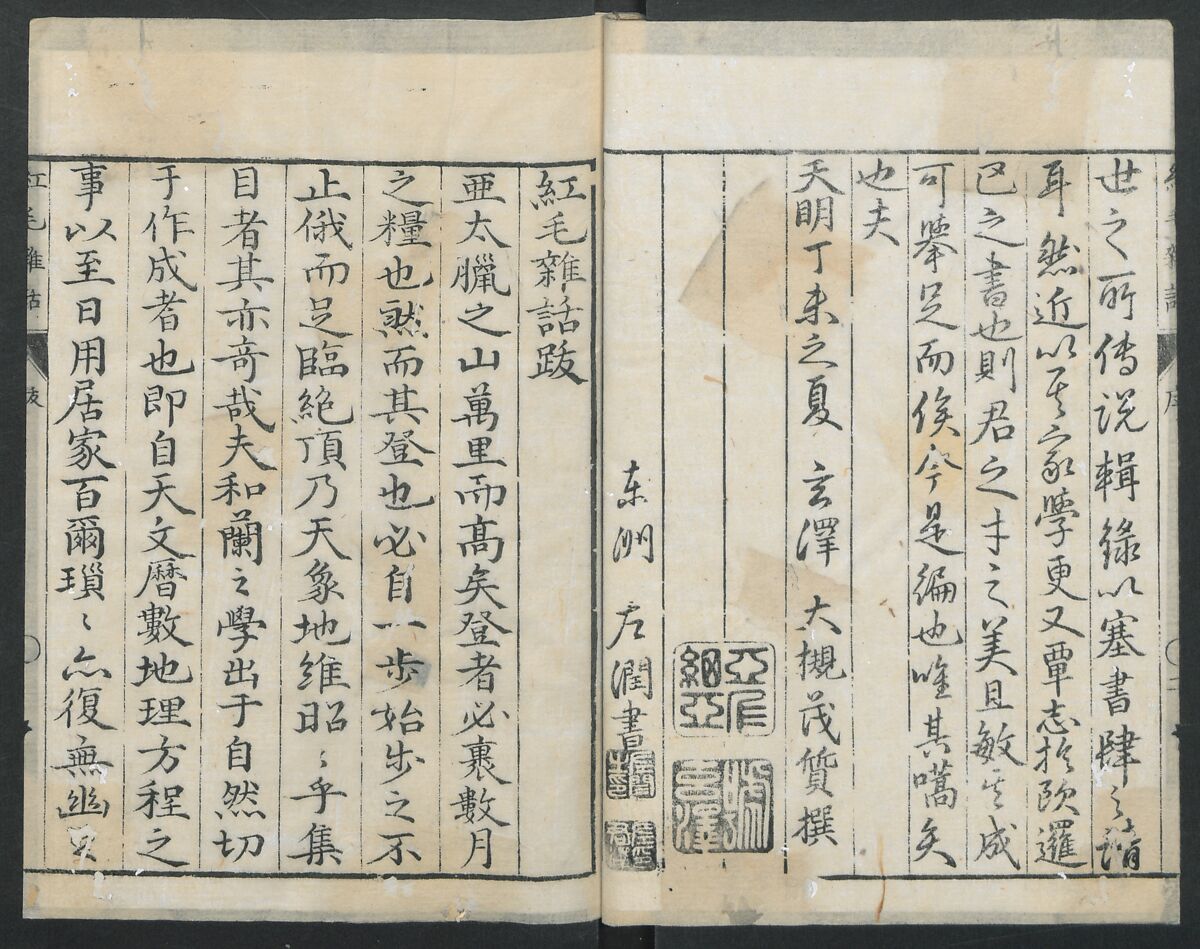 世之所傳説輯錄以塞書肆之請
耳然近以其家學更又覃志於欧邏
巴之書也則君之才之美且敏其成
可擧足而俟今是編也唯其嚆矢
也夫
天明丁未之夏 玄澤 大槻茂質撰
東洲 左潤書
紅毛雜話跋
亜太臘之山萬里而髙矣登者必裹數月
之糧也然而其登也必自一歩始歩之不
止俄而足臨絶頂乃天象地維昭〻乎集
目者其亦竒哉夫和蘭之學出于自然切
于作成者也即自天文暦數地理方程之
事以至日用居家百爾瑣〻亦復無幽
紅毛雜話
跋